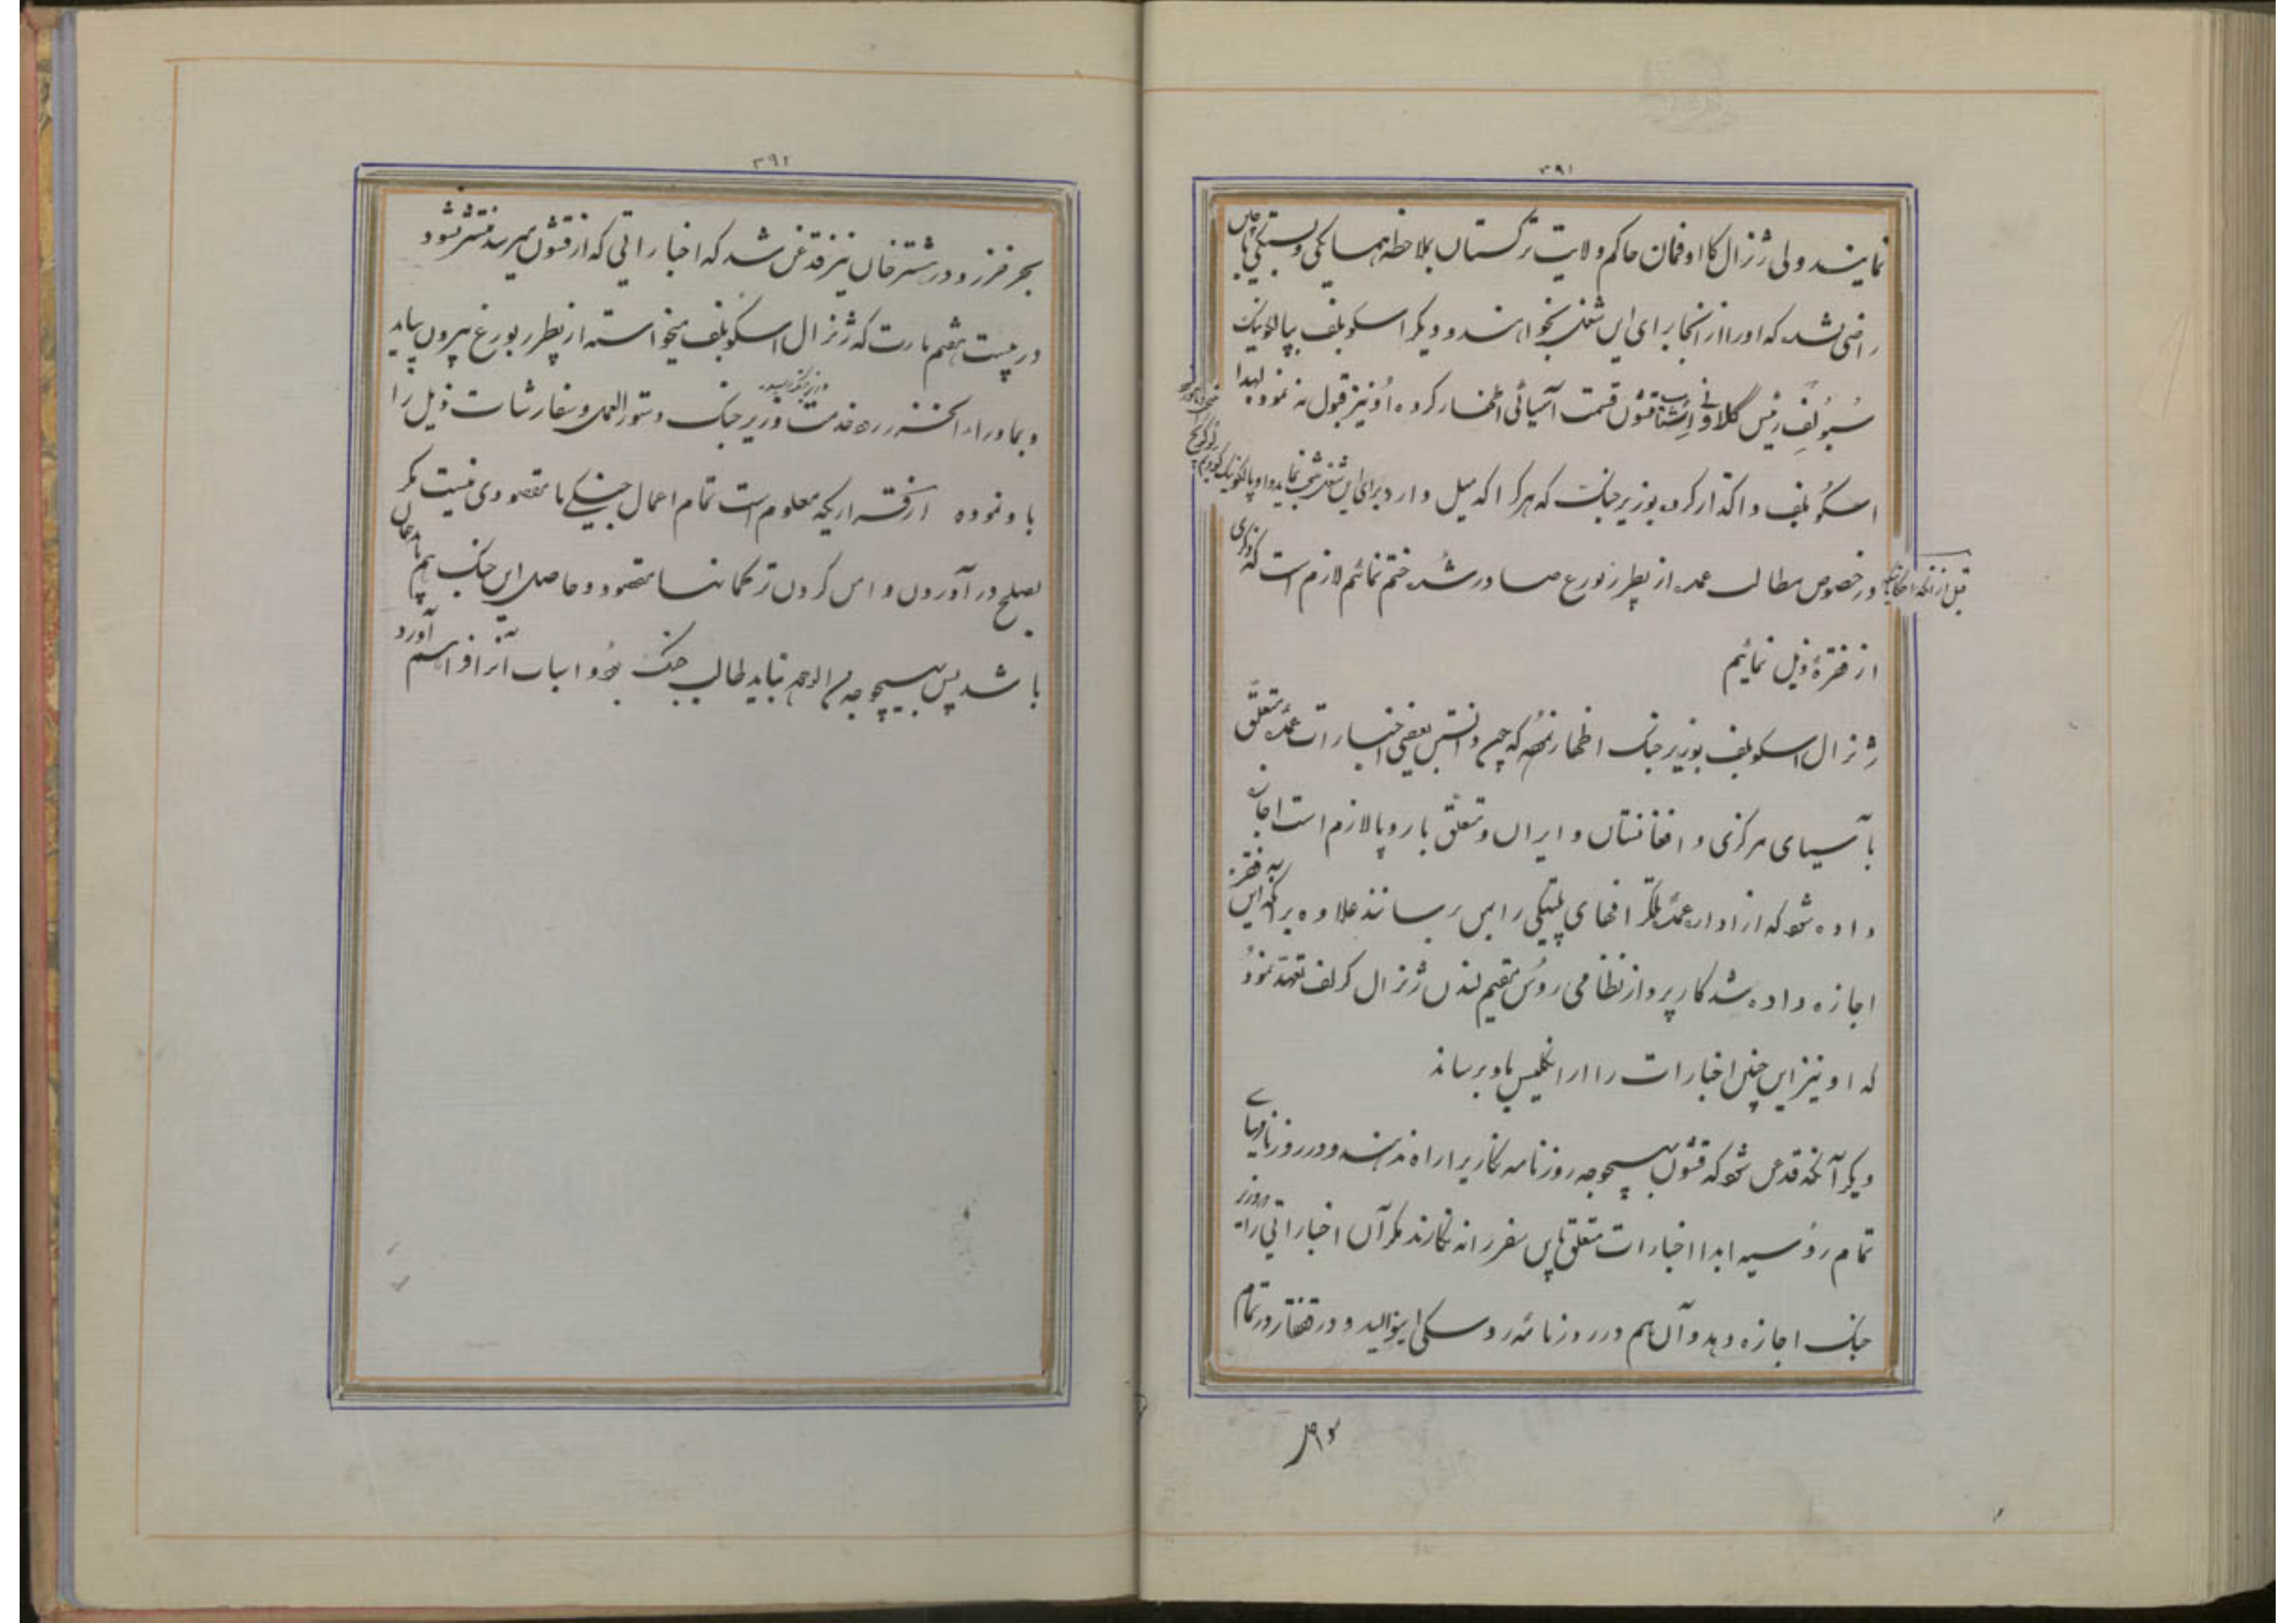 ۳۹۱
نمایند ولی ژنرال کااوفمان حاکم ولایت ترکستان بملاحظه همسایگی و بستگی
راضی نشد که او را از انجا برای این شغل بخواهند و دیگر اسکوبلف بپالکونیک
سُبوُلِف رئیس گلاونی اِشتاب قشون قسمت آسیائی اظهار کرده اوُ نیز قبول نه نمود لهذا
اسکوُبلف واگذار کرد بوزیر جنگ که هر کرا که میل دارد برای این شغل منتخب نماید و او پالکونیک
قبل از آنکه احکامیکه در خصوص مطالب عمده از پطرزبورغ صادر شد ختم نمائیم لازم است که ذکری
از فقرهٔ ذیل نمائیم
ژنرال اسکوبلف بوزیر جنگ اظهار نمود که چون دانستن بعضی اخبارات عمده متعلق
بآسیای مرکزی و افغانستان و ایران و متعلق باروپا لازم است اجازه
داده شود که از اداره عمده تلگرافهای پلتیکی را بمن برسانند علاوه بر آنکه باین فقره
اجازه داده شد کارپرداز نظامی روُس مقیم لندن ژنرال کرلف تعهد نمود
که او نیز این چنین اخبارات را از انگلیس باو برساند
دیگر آنکه قدغن شود که قشون بهیچوجه روزنامه نگار را راه ندهند و در روزنامهای
تمام روُسیه ابدا اخبارات متعلق باین سفر را نه نگارند مگر آن اخباراتی را که وزیر
جنگ اجازه دهد و آن هم در روزنامه روسکی اینوالید و در قفقاز و در تمام
۳۹۲
بحر خزر و در هشترخان نیز قدغن شد که اخباراتی که از قشون میرسد منتشر نشود
در بیست هشتم مارت که ژنرال اسکوبلف میخواسته از پطرزبورغ بیرون بیاید
و بماوراء الخزر رود خدمت وزیر جنگ دستورالعمل و سفارشات ذیل را
باو نموده از قراریکه معلوم است تمام اعمال جنگی ما مقصودی نیست مگر
بصلح در آوردن و امن کردن ترکمانها مقصود و حاصل این جنگ هم باید همان
باشد پس بهیچوجه من الوجوه نباید طالب جنگ بود و اسباب آنرا فراهم آورد